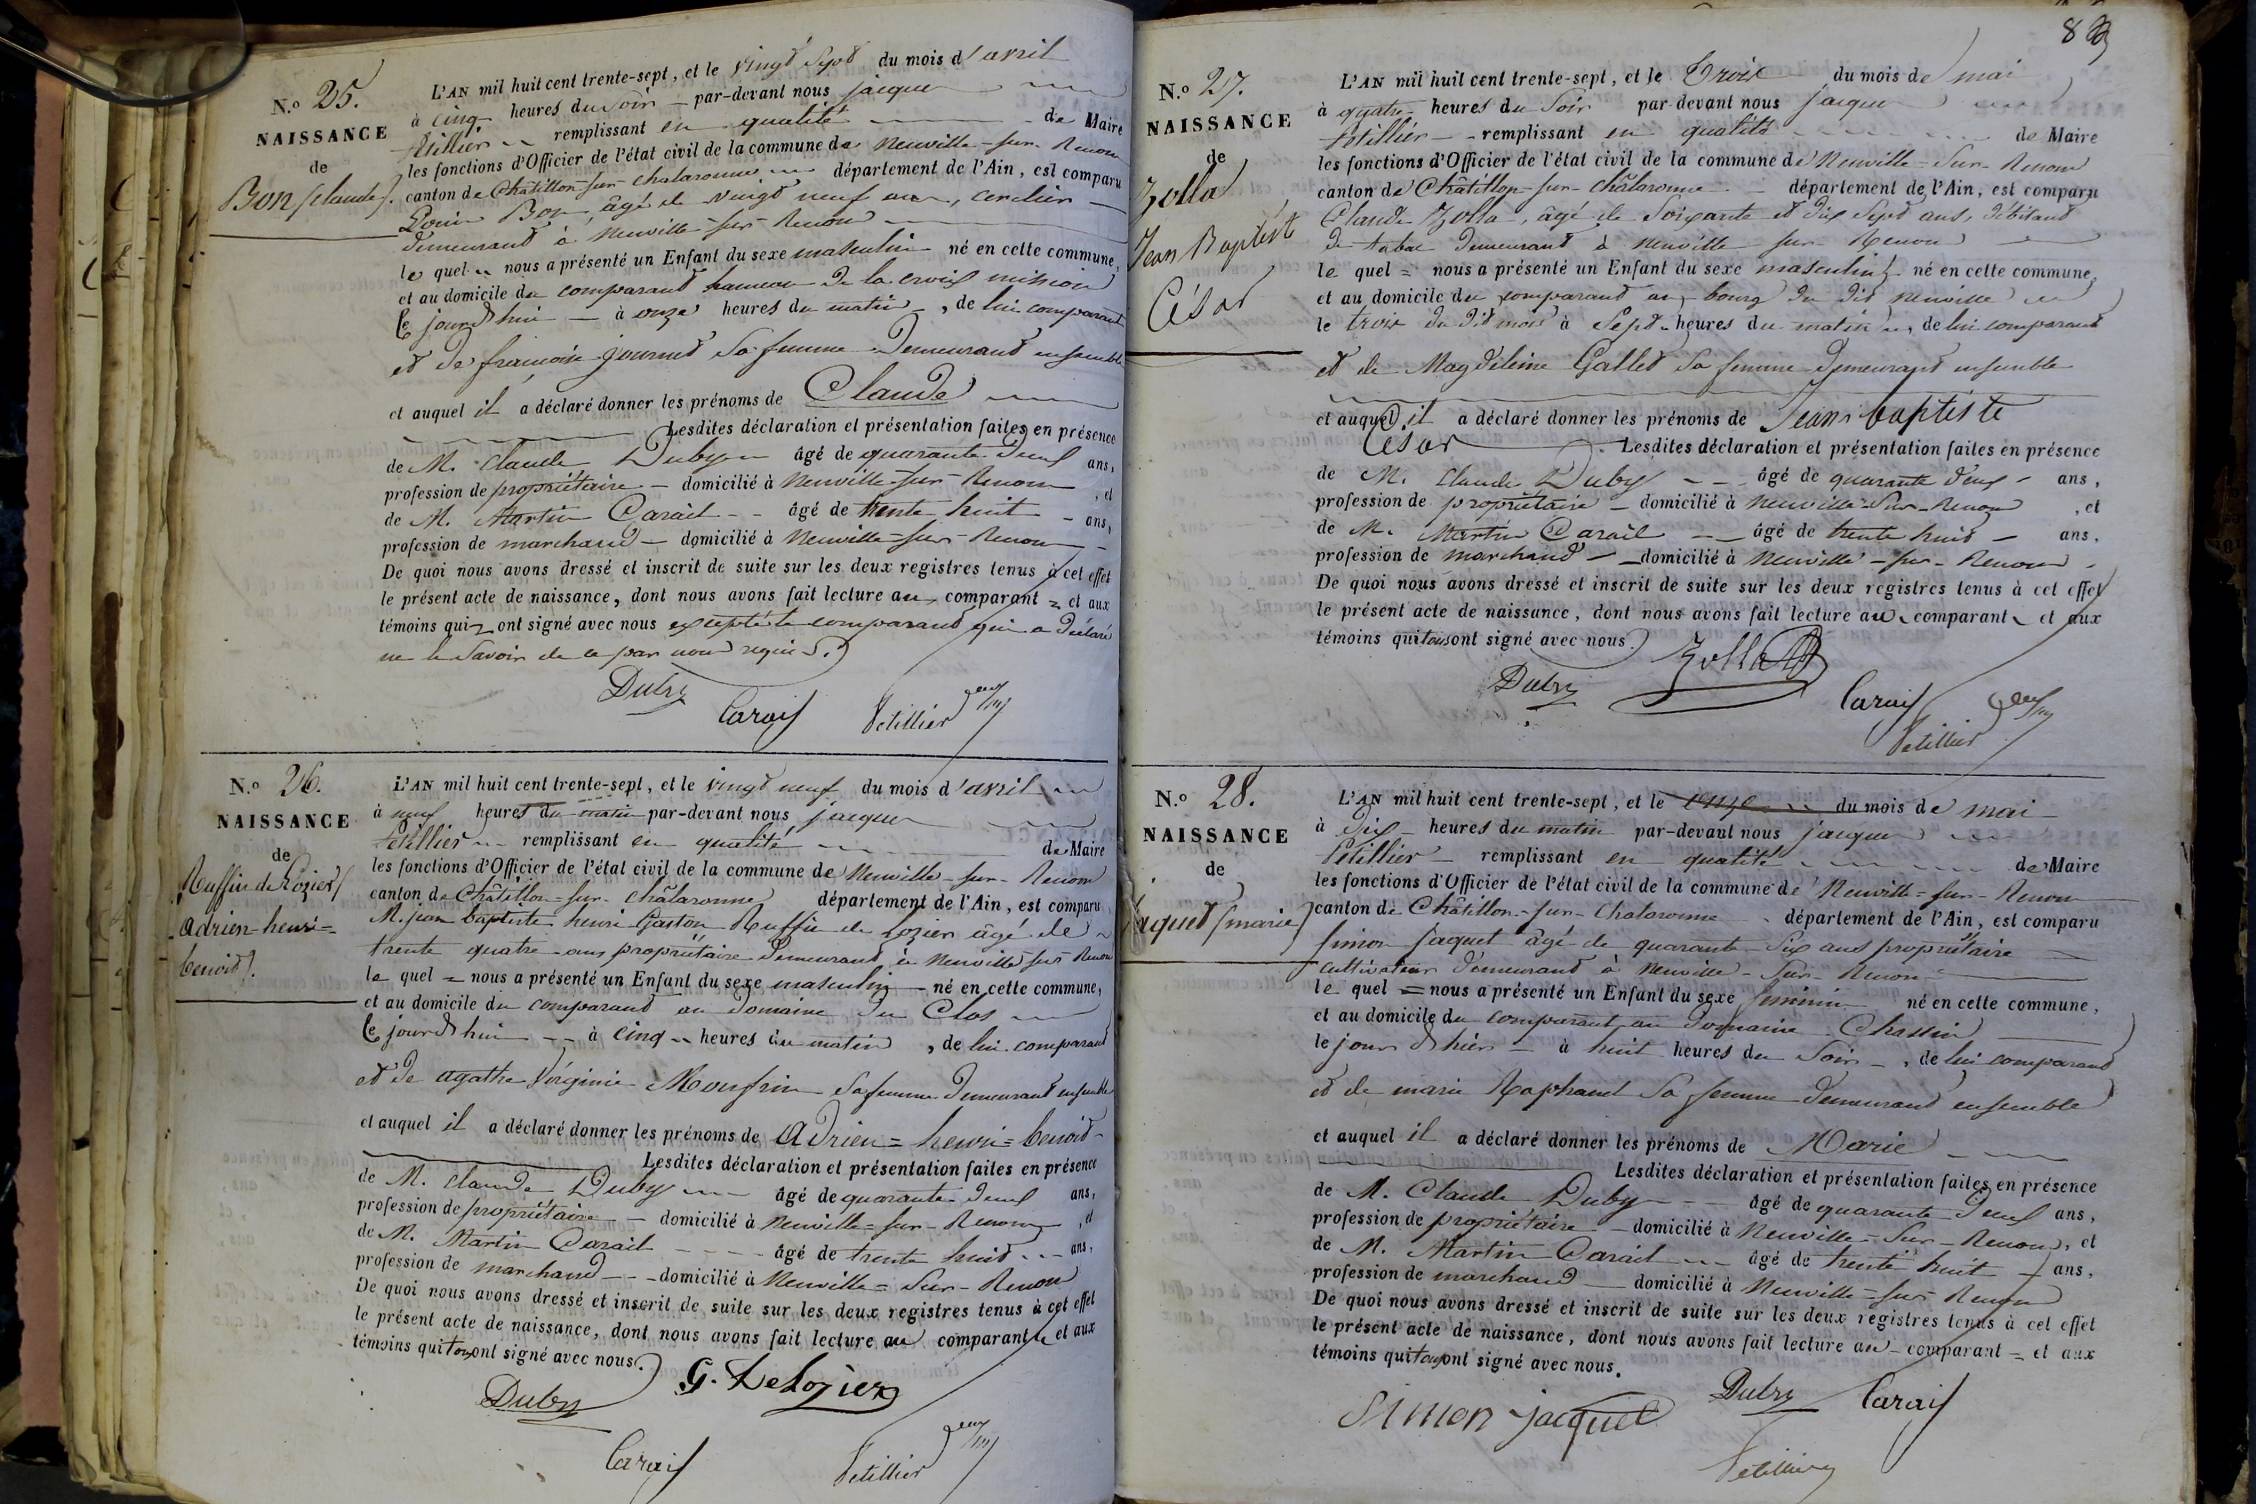 N.o 25.
NAISSANCE
de
Bon (claude).
L'AN mil huit cent trente-sept, et le vingt sept du mois d'avril
à cinq heures du soir par-devant nous jacques
Petillier remplissant en qualité de Maire
les fonctions d'Officier de l'état civil de la commune de Neuville-sur-Renom
canton de Châtillon-sur-chalaronne département de l'Ain, est comparu
Bon, âgé de vingt neuf ans, cerclier
demeurant à Neuville-sur-Renom
le quel nous a présenté un Enfant du sexe masculin né en cette commune,
et au domicile du comparant hameau de la croix mission
le jourd'hui à onze heures du matin, de lui comparant
et de francoise journet sa femme demeurant ensemble
et auquel il a déclaré donner les prénoms de Claude
Lesdites déclaration et présentation faites en présence
de M. claude Duby âgé de quarante deux ans,
profession de propriétaire domicilié à Neuville-sur-Renom, et
de M. Martin Carail âgé de trente huit ans,
profession de marchand domicilié à Neuville-sur-Renom
De quoi nous avons dressé et inscrit de suite sur les deux registres tenus à cet effet
le présent acte de naissance, dont nous avons fait lecture au comparant et aux
témoins qui ont signé avec nous excepté le comparant qui a déclaré
ne le savoir de ce par nous requis.
Duby
Carail Petillier
N.o 26.
NAISSANCE
de
Ruffin de Lozier (
adrien-henri=
benoit).
L'AN mil huit cent trente-sept, et le vingt neuf du mois d'avril
à neuf heures du matin par-devant nous jacques
Petillier remplissant en qualité de Maire
les fonctions d'Officier de l'état civil de la commune de Neuville-sur-Renom
canton de Châtillon-sur-châlaronne département de l'Ain, est comparu
M. jean baptiste henri Gaston Ruffin de Lozier âgé de
trente quatre ans propriétaire demeurant à Neuville sur Renom
le quel = nous a présenté un Enfant du sexe masculin né en cette commune,
et au domicile du comparant au domaine du Clos
le jourd'hui à cinq heures du matin, de lui comparant
et de agathe Virginie sa femme demeurant ensemble
et auquel il a déclaré donner les prénoms de Adrien=henri=benoit
Lesdites déclaration et présentation faites en présence
de M. claude Duby âgé de quarante deux ans,
profession de propriétaire domicilié à Neuville=sur-Renom, et
de M. Martin Carail âgé de trente huit ans,
profession de marchand domicilié à Neuville=Sur-Renom
De quoi nous avons dressé et inscrit de suite sur les deux registres tenus à cet effet
le présent acte de naissance, dont nous avons fait lecture au comparant et aux
témoins qui tous ont signé avec nous.
Duby G. DeLozier
Carail Petillier
83
N.o 27.
NAISSANCE
de
Zolla
Jean Baptiste
César
L'AN mil huit cent trente-sept, et le Trois du mois de mai
à quatre heures du soir par-devant nous jacques
Petillier remplissant en qualité de Maire
les fonctions d'Officier de l'état civil de la commune de Neuville-Sur-Renom
canton de Châtillon-sur-châlaronne département de l'Ain, est comparu
Claude Zolla, âgé de soixante et dix sept ans, débitant
de tabac demeurant à Neuville sur Renom
le quel = nous a présenté un Enfant du sexe masculin né en cette commune,
et au domicile du comparant au bourg du dit neuville
le trois du dit mois à sept heures du matin, de lui comparant
et de Magdeleine Gallet sa femme demeurant ensemble
et auquel il a déclaré donner les prénoms de Jean baptiste
César Lesdites déclaration et présentation faites en présence
de M. Claude Duby âgé de quarante deux ans,
profession de propriétaire domicilié à Neuville-Sur-Renom, et
de M. Martin Carail âgé de trente huit ans,
profession de marchand domicilié à Neuville-sur-Renom
De quoi nous avons dressé et inscrit de suite sur les deux registres tenus à cet effet
le présent acte de naissance, dont nous avons fait lecture au comparant et aux
témoins qui tous ont signé avec nous.
Duby Zolla Carail
Petillier
N.o 28.
NAISSANCE
de
Jaquet (marie)
L'AN mil huit cent trente-sept, et le onze du mois de mai
à Dix heures du matin par-devant nous jacques
Petillier remplissant en qualité de Maire
les fonctions d'Officier de l'état civil de la commune de Neuville-sur-Renom
canton de Châtillon-sur-chalaronne département de l'Ain, est comparu
Simon jaquet âgé de quarante six ans propriétaire
cultivateur demeurant à Neuville-Sur-Renom
le quel = nous a présenté un Enfant du sexe féminin né en cette commune,
et au domicile du comparant au domaine Chassin
le jour d'hier à huit heures du soir, de lui comparant
et de marie Raphanel sa femme demeurant ensemble
et auquel il a déclaré donner les prénoms de Marie
Lesdites déclaration et présentation faites en présence
de M. Claude Duby âgé de quarante deux ans,
profession de propriétaire domicilié à Neuville-Sur-Renom, et
de M. Martin Carail âgé de trente huit ans,
profession de marchand domicilié à Neuville-sur-Renom
De quoi nous avons dressé et inscrit de suite sur les deux registres tenus à cet effet
le présent acte de naissance, dont nous avons fait lecture au comparant = et aux
témoins qui tous ont signé avec nous.
Simon jacquet Duby Carail
Petillier